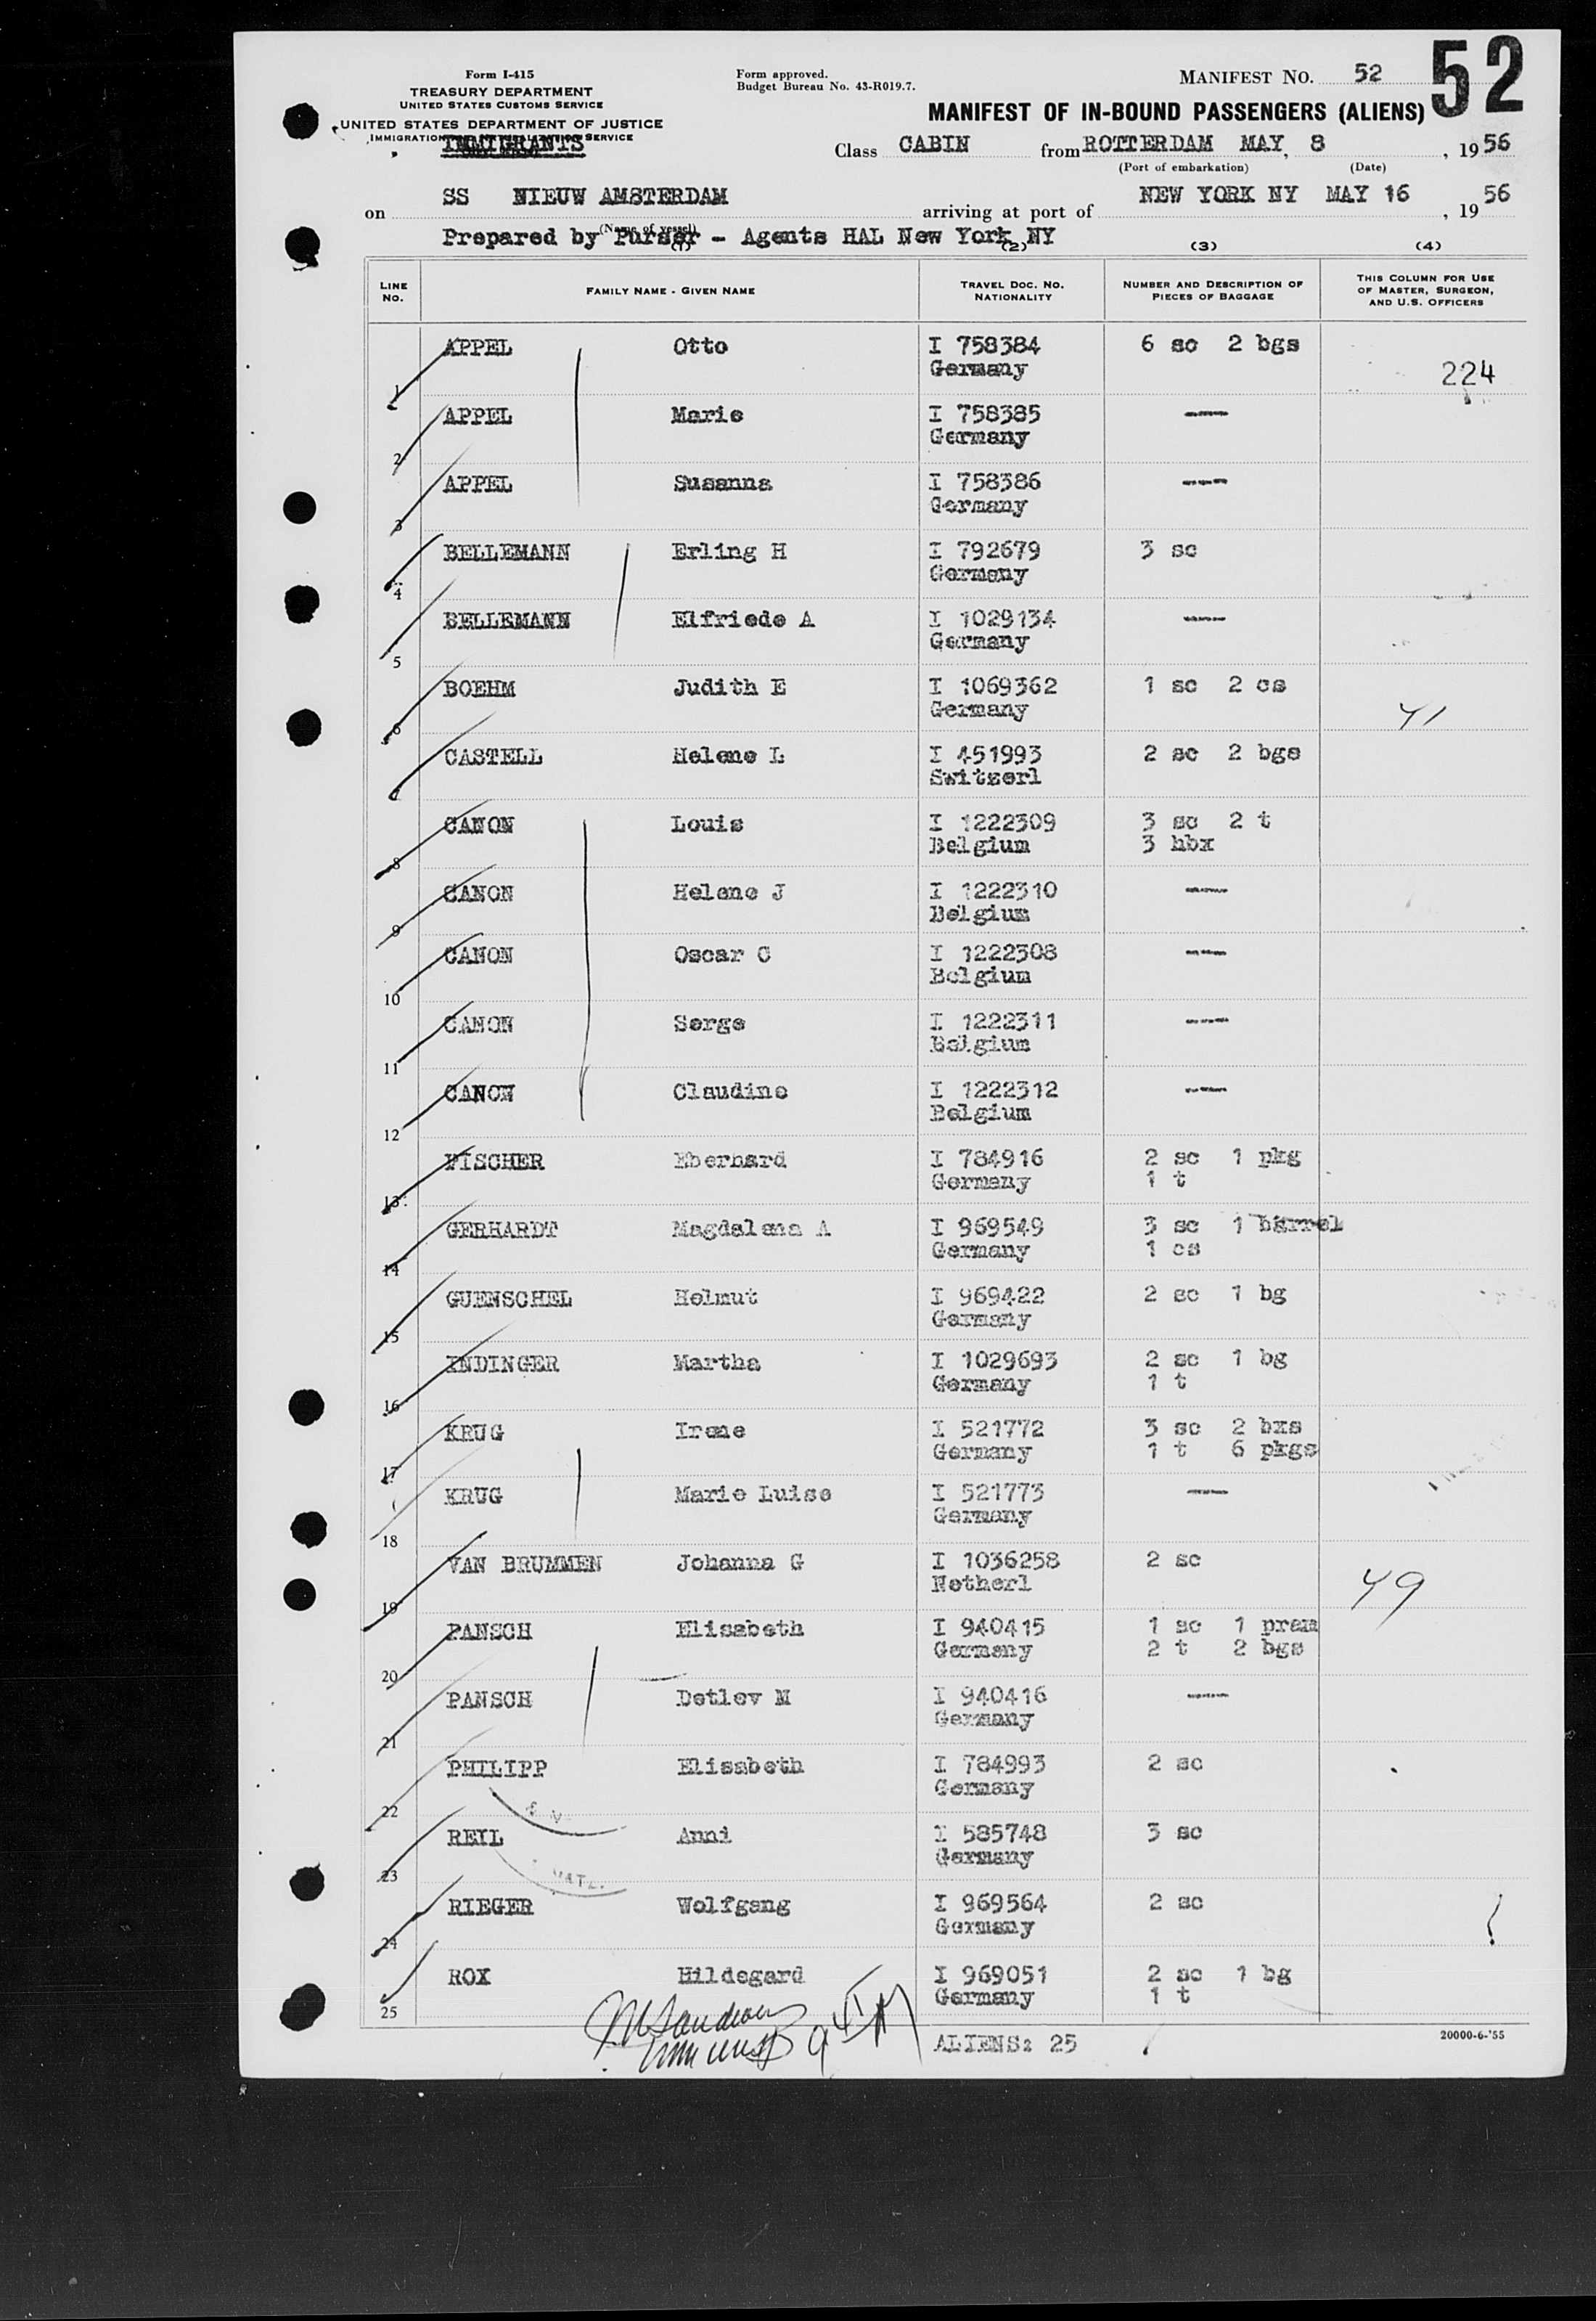 52
Form I-415
TREASURY DEPARTMENT
UNITED STATES CUSTOMS SERVICE
UNITED STATES DEPARTMENT OF JUSTICE
IMMIGRATION AND NATURALIZATION SERVICE
IMMIGRANTS
Form approved.
Budget Bureau No. 43-R019.7.
MANIFEST NO. 52
MANIFEST OF IN-BOUND PASSENGERS (ALIENS)
Class CABIN from ROTTERDAM MAY, 8, 1956
(Port of embarkation) (Date)
on SS NIEUW AMSTERDAM arriving at port of NEW YORK NY MAY 16, 1956
(Name of vessel)
Prepared by Purser - Agents HAL New York NY
(1) (2) (3) (4)
LINE NO. FAMILY NAME - GIVEN NAME TRAVEL DOC. NO. NATIONALITY NUMBER AND DESCRIPTION OF PIECES OF BAGGAGE THIS COLUMN FOR USE OF MASTER, SURGEON, AND U.S. OFFICERS
1 APPEL Otto I 758384 6 sc 2 bgs
Germany 224
2 APPEL Marie I 758385 ---
Germany
3 APPEL Susanna I 758386 ---
Germany
4 BELLEMANN Erling H I 792679 3 sc
Germany
5 BELLEMANN Elfriede A I 1029134 ---
Germany
6 BOEHM Judith E I 1069362 1 sc 2 cs
Germany 41
7 CASTELL Helene L I 451993 2 sc 2 bgs
Switzerl
8 CANON Louis I 1222309 3 sc 2 t
Belgium 3 hbx
9 CANON Helene J I 1222310 ---
Belgium
10 CANON Oscar C I 1222308 ---
Belgium
11 CANON Serge I 1222311 ---
Belgium
12 CANON Claudine I 1222312 ---
Belgium
13 FISCHER Eberhard I 784916 2 sc 1 pkg
Germany 1 t
14 GERHARDT Magdalena A I 969549 3 sc 1 barrel
Germany 1 cs
15 GUENSCHEL Helmut I 969422 2 sc 1 bg
Germany
16 INDINGER Martha I 1029693 2 sc 1 bg
Germany 1 t
17 KRUG Irene I 521772 3 sc 2 bxs
Germany 1 t 6 pkgs
18 KRUG Marie Luise I 521773 ---
Germany
19 VAN BRUMMEN Johanna G I 1036258 2 sc
Netherl 49
20 PANSCH Elisabeth I 940415 1 sc 1 pram
Germany 2 t 2 bgs
21 PANSCH Detlev M I 940416 ---
Germany
22 PHILIPP Elisabeth I 784993 2 sc
Germany
23 REIL Anni I 585748 3 sc
Germany
24 RIEGER Wolfgang I 969564 2 sc
Germany
25 ROX Hildegard I 969051 2 sc 1 bg
Germany 1 t
ALIENS: 25
20000-6-'55